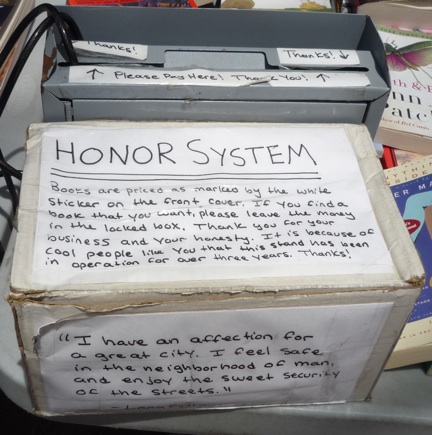 Thanks!
Thanks! ↓
↑ Please Pay Here! Thank You! ↑
HONOR SYSTEM
Books are priced as marked by the white
sticker on the front cover. If you find a
book that you want, please leave the money
in the locked box. Thank you for your
business and your honesty. It is because of
cool people like you that this stand has been
in operation for over three years. Thanks!
"I have an affection for
a great city. I feel safe
in the neighborhood of man,
and enjoy the sweet security
of the streets."